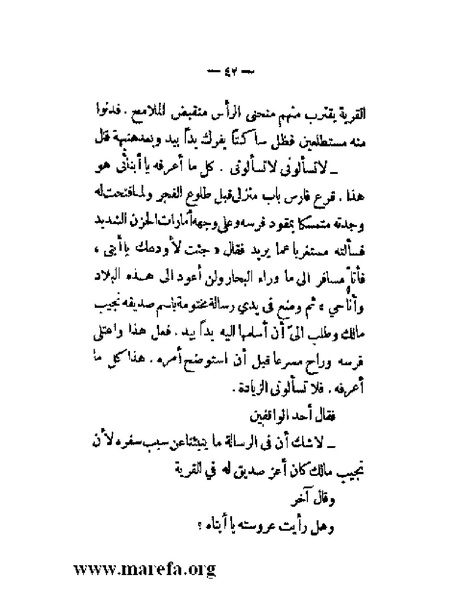 — ٤٢ —
القرية يقترب منهم منحنى الرأس منقبض الملامح . فدنوا
منه مستطلعين فظل ساكتاً يفرك يداً بيد وبعد هنيهة قال
ـ لا تسألونى لا تسألونى . كل ما أعرفه يا أبنائى هو
هذا . قرع فارس باب منزلى قبل طلوع الفجر ولما فتحت له
وجدته متمسكا بمقود فرسه وعلى وجهه أمارات الحزن الشديد
فسألته مستغربا عما يريد فقال « جئت لأودعك يا أبتى ،
فأنا مسافر الى ما وراء البحار ولن أعود الى هذه البلاد
وأنا حي » ثم وضع فى يدي رسالة مختومة باسم صديقه نجيب
مالك وطلب الىّ أن أسلمها اليه يداً بيد . فعل هذا واعتلى
فرسه وراح مسرعا قبل أن استوضح أمره . هذا كل ما
أعرفه . فلا تسألونى الزيادة .
فقال أحد الواقفين
ـ لاشك أن فى الرسالة ما ينبئنا عن سبب سفره لأن
نجيب مالك كان أعز صديق له في القرية
وقال آخر
وهل رأيت عروسته يا أبتاه ؟
www.marefa.org